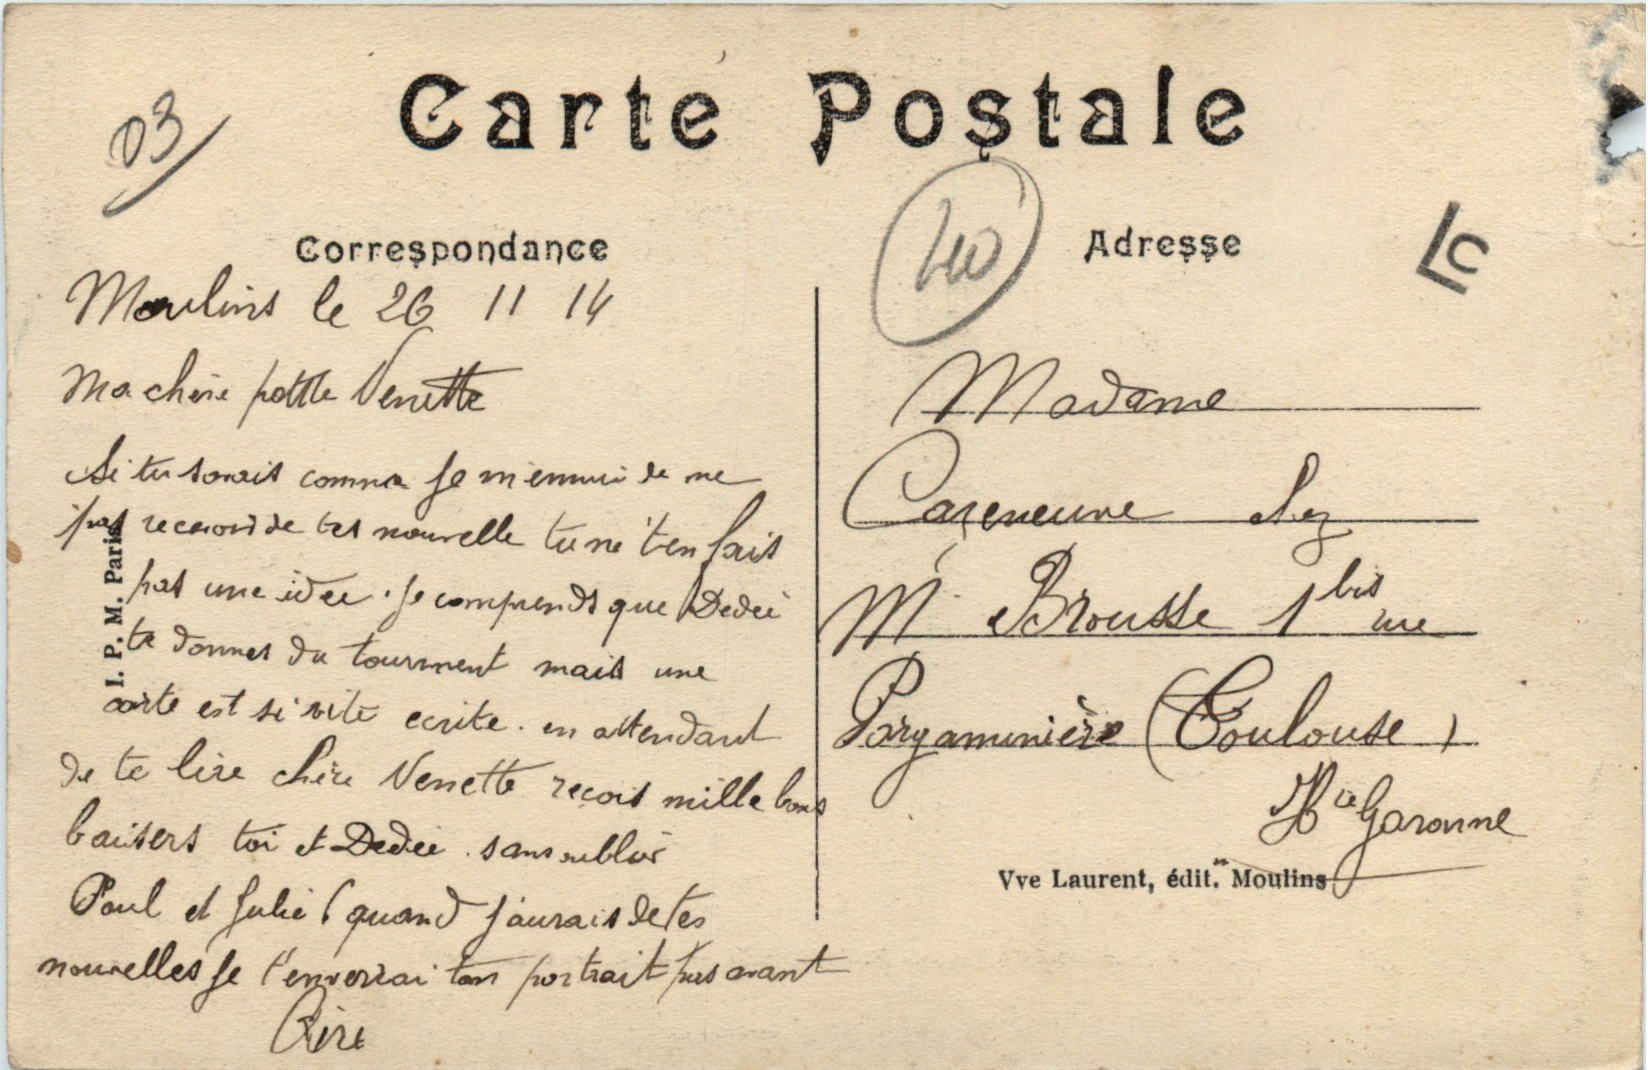 Carte Postale
03
40
LC
Correspondance
Moulins le 26 11 14
Ma chère petite Venette
Si tu savais comme je m'ennui de ne
pas recevoir de tes nouvelle tu ne t'en fais
pas une idée. Je comprends que Dedée
te donnes du tourment mais une
carte est si vite ecrite. en attendant
de te lire chère Venette reçois mille bons
baisers toi et Dedée. sans oublier
Paul et Julie (quand j'aurais de tes
nouvelles je t'enverrai ton portrait pas avant
I. P. M. Paris
Adresse
Madame
Cazeneuve chez
Mr Brousse 1 bis rue
Pargaminière (Toulouse)
Hte Garonne
Vve Laurent, édit. Moulins